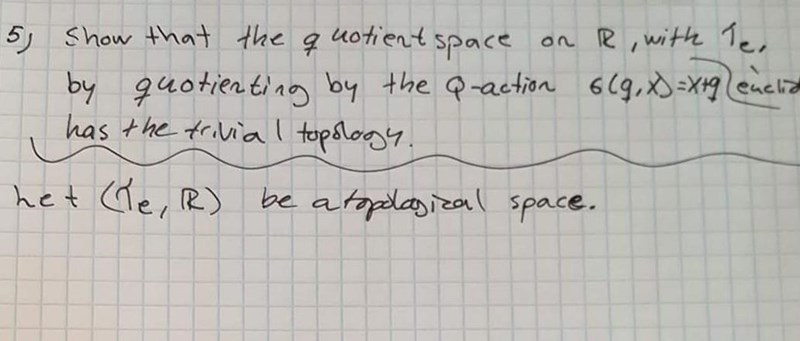 5) Show that the quotient space on ℝ, with τe,
by quotienting by the Q-action σ(q,x)=x+q euclid
has the trivial topology.
Let (τe, ℝ) be a topological space.